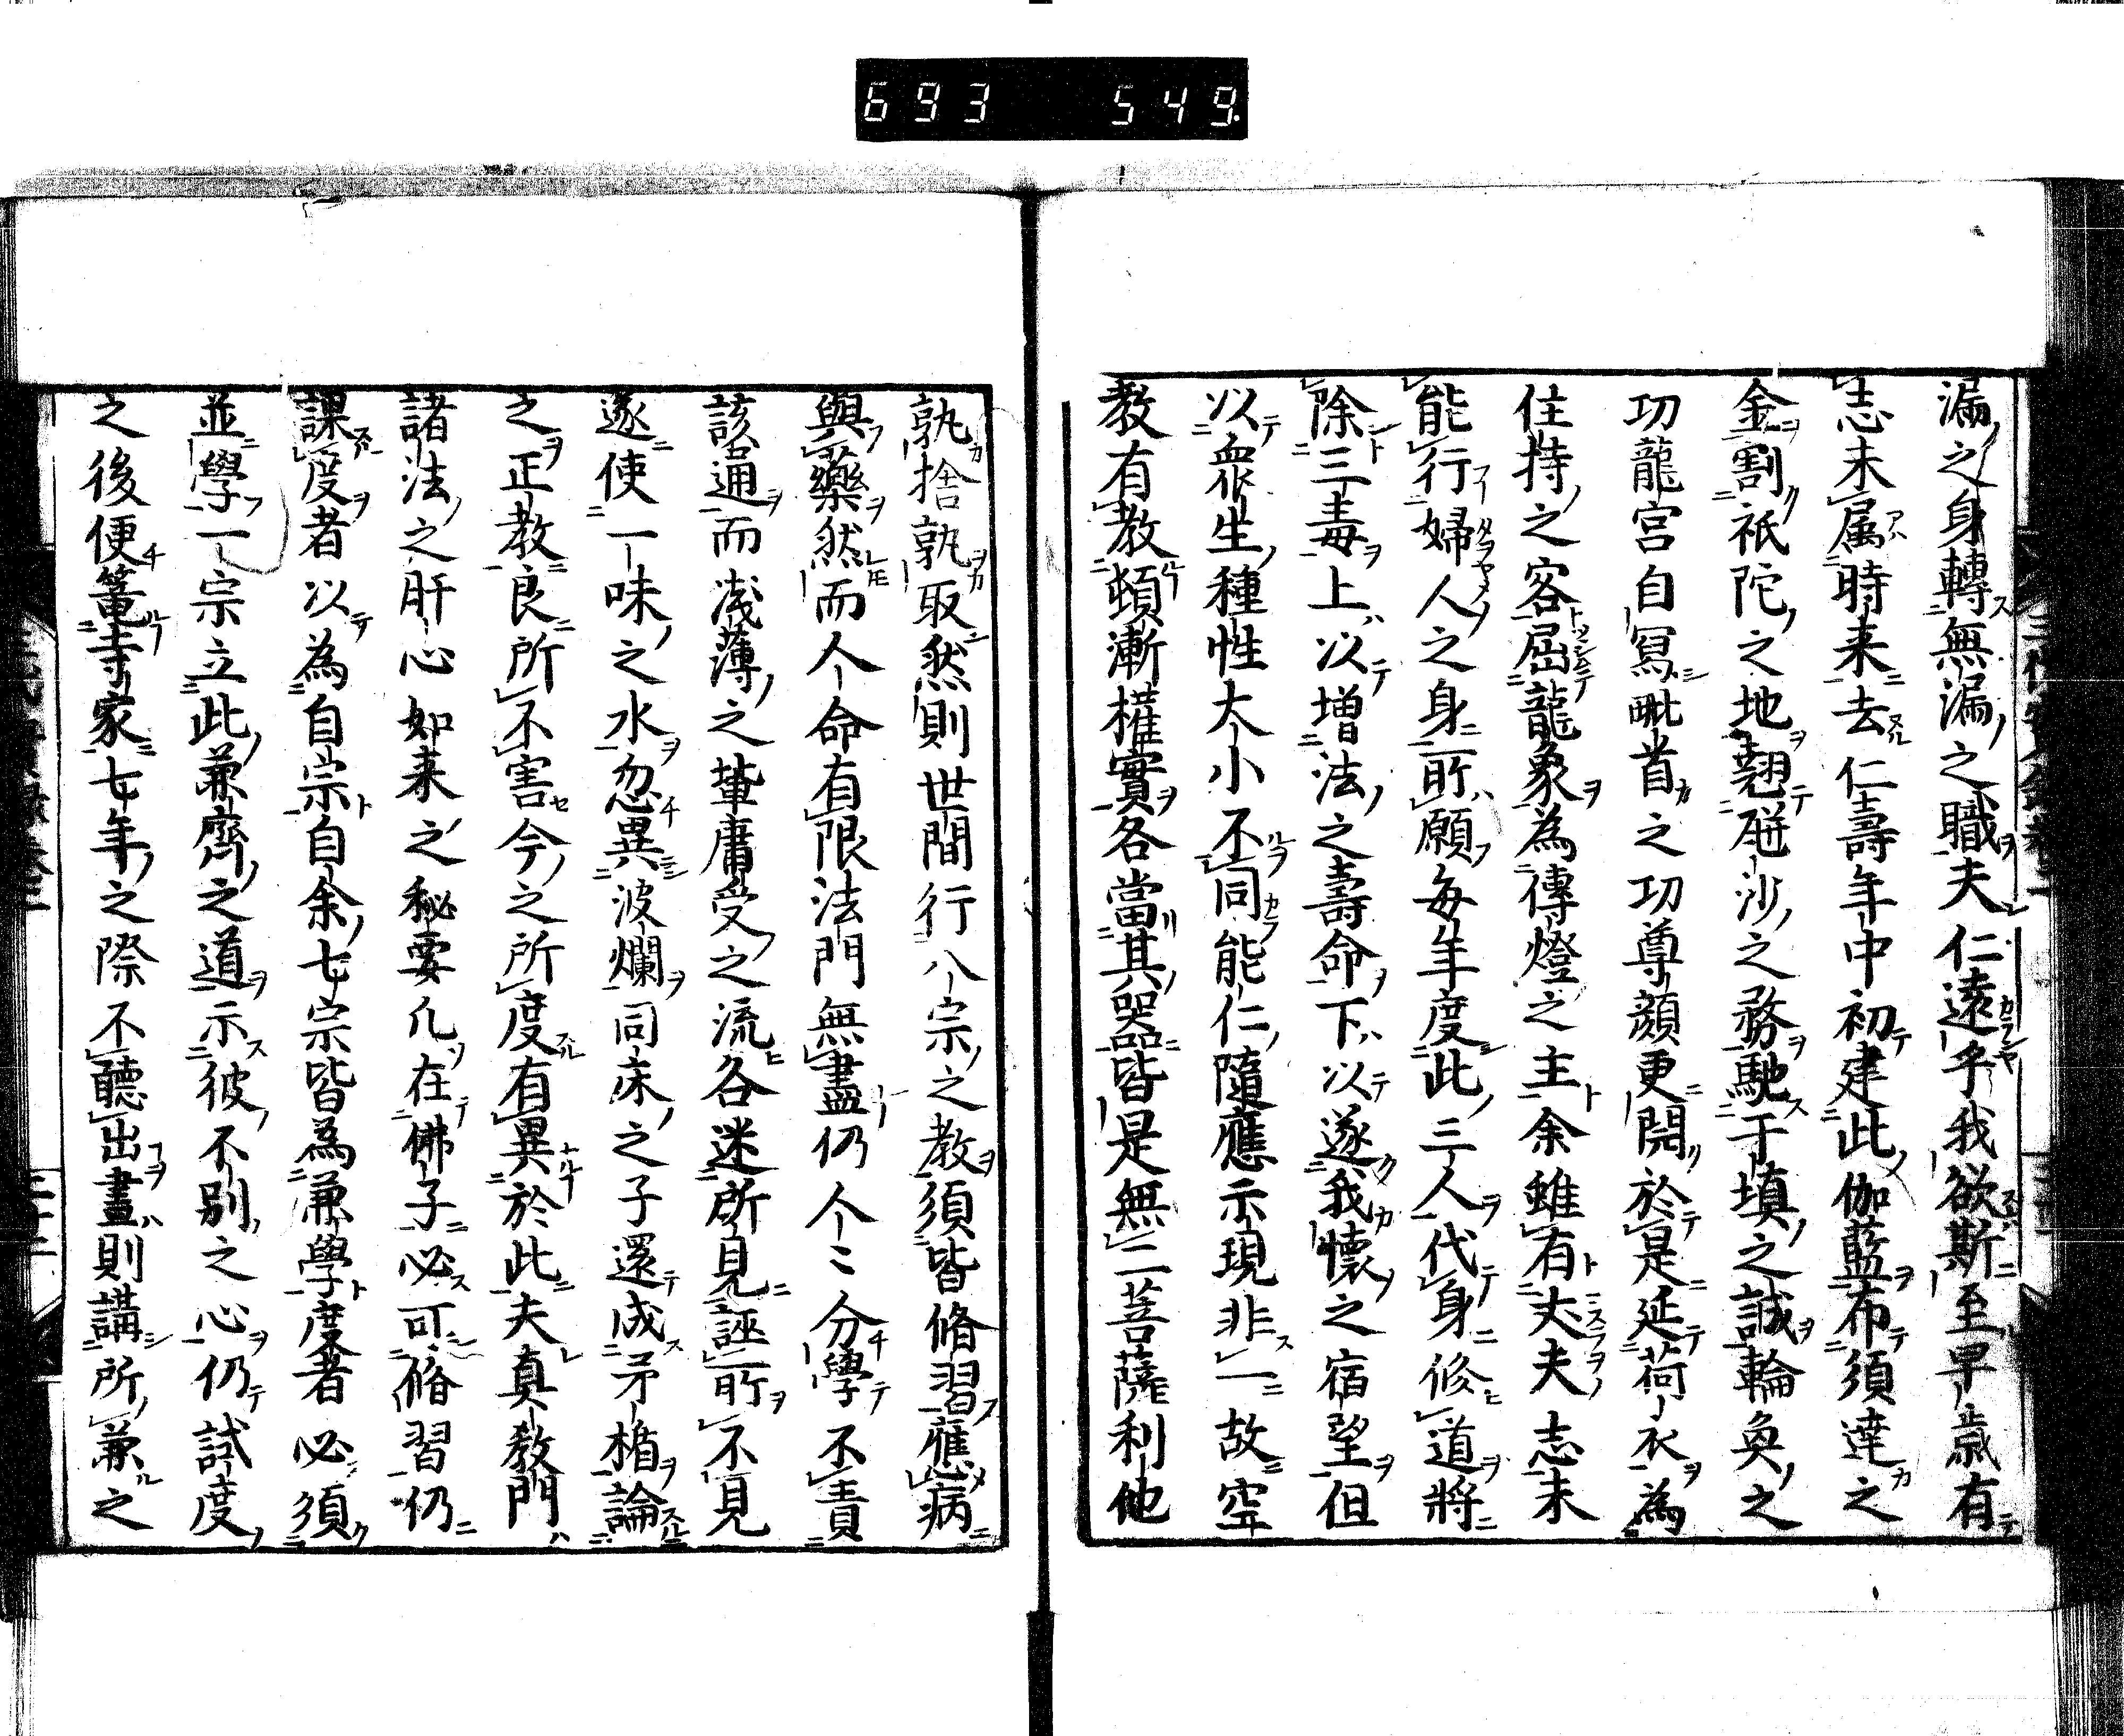 693 549.
漏之身轉無漏之職夫仁遠乎我欲斯至早歳有
志未属時来去仁壽年中初建此伽藍布須達之
金割祇陀之地翹砒沙之務馳于填之誠輪奐之
功龍宮自冩毗首之功尊顔更開於是延荷衣為
住持之客屈龍象為傳燈之主余雖有丈夫志未
能行婦人之身所願毎年度此三人代身修道將
除三毒上以増法之壽命下以遂我懐之宿望但
以衆生種性大小不同能仁隨應示現非一故空
教有教頓漸權實各當其器皆是無二菩薩利他
孰捨孰取然則世間行八宗之教須皆脩習應病
與藥然而人命有限法門無盡仍人〻分學不責
該通而淺薄之輩庸受之流各迷所見誣所不見
遂使一味之水忽異波爛同床之子還成矛楯論
之正教良所不害今之所度有異於此夫真教門
諸法之肝心如来之秘要凡在佛子必可脩習仍
課度者以為自宗自余七宗皆為兼學度者必須
並學一宗立此兼齊之道示彼不別之心仍試度
之後便篭寺家七年之際不聽出晝則講所兼之